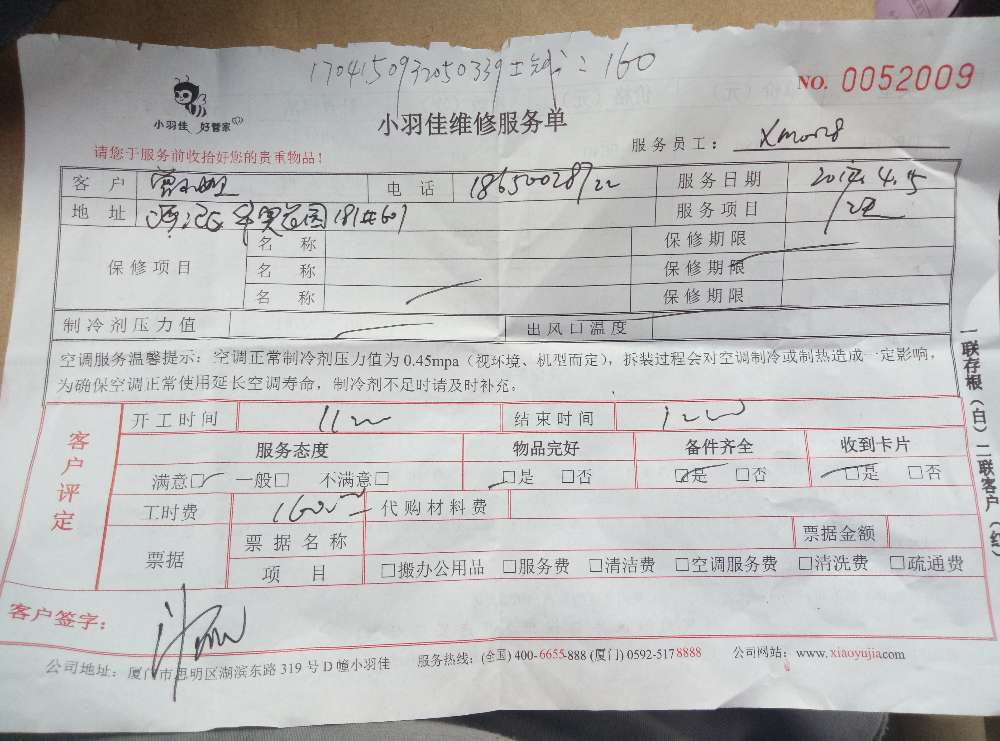 1704150932050339 = 160
NO. 0052009
小羽佳 好管家
小羽佳维修服务单
服务员工： Xm0028
请您于服务前收拾好您的贵重物品！
客户 电话 18650028722 服务日期 2017.4.15
地址 181#607 服务项目
保修项目 名称 保修期限
名称 保修期限
名称 保修期限
制冷剂压力值 出风口温度
空调服务温馨提示：空调正常制冷剂压力值为0.45mpa（视环境、机型而定），拆装过程会对空调制冷或制热造成一定影响，
为确保空调正常使用延长空调寿命，制冷剂不足时请及时补充。
客户评定
开工时间 1100 结束时间 1200
服务态度 物品完好 备件齐全 收到卡片
满意□ 一般□ 不满意□ □是 □否 □是 □否 □是 □否
工时费 160元 代购材料费
票据 票据名称 票据金额
项目 □搬办公用品 □服务费 □清洁费 □空调服务费 □清洗费 □疏通费
客户签字：
公司地址：厦门市思明区湖滨东路319号D幢小羽佳 服务热线：(全国) 400-6655-888 (厦门) 0592-5178888 公司网站：www.xiaoyujia.com
一联存根（白）二联客户（红）